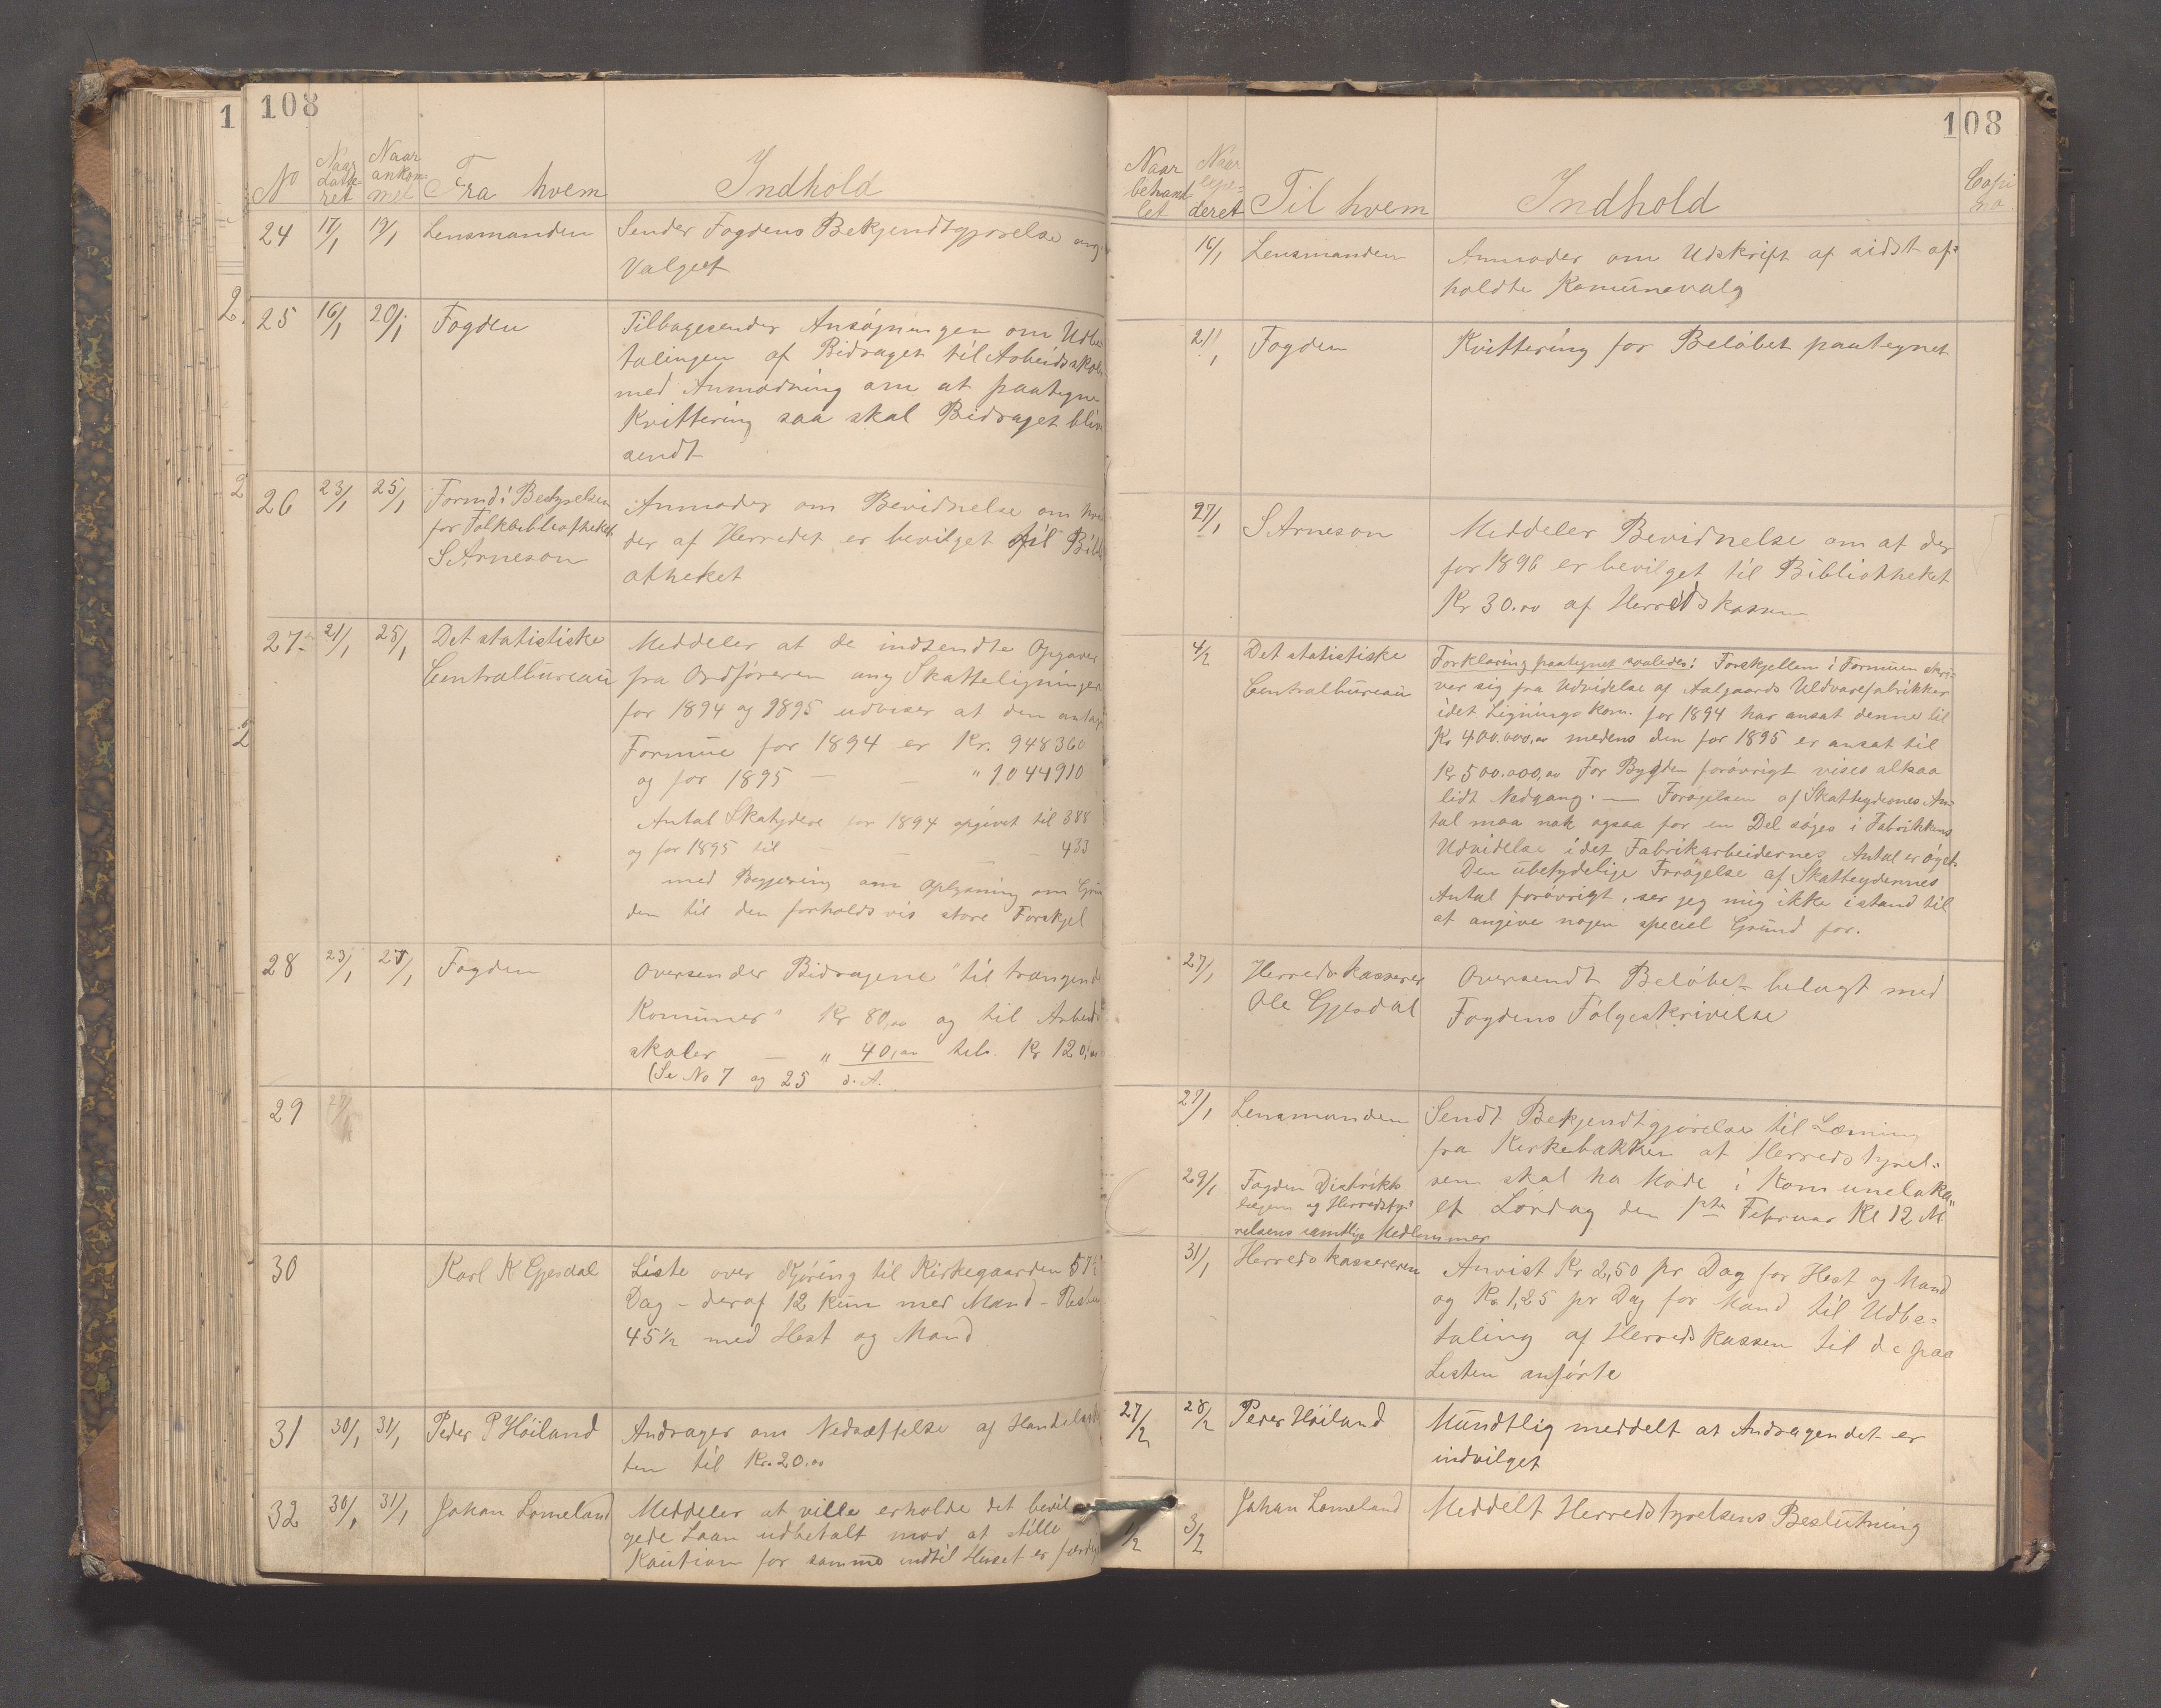 108
No
Naar datte- ret
Naar ankom- met
Fra hvem
Indhold
24 17/1 19/1 Lensmanden Sender Fogdens Bekjendtgjørelse ang.
Valget
25 16/1 20/1 Fogden Tilbagesender Ansøgningen om Udbe
talingen af Bidraget til Arbeidsskole
med Anmodning om at paategne
Kvittering saa skal Bidraget bliv
sendt
26 23/1 25/1 Formd i Bestyrelsen
for Folkbibliotheket
S Arneson
Anmoder om Bevidnelse om hva
der af Herredet er bevilget til Bibli
otheket
27 21/1 25/1 Det statistiske
Centralbureau
Meddeler at de indsendte Opgaver
fra Ordføreren ang Skatteligninger
for 1894 og 1895 udviser at den antag
Formue for 1894 er Kr. 948360
og for 1895 — — " 1044910
Antal Skatydere for 1894 opgivet til 388
og for 1895 til — — — 433
med Begjæring om Oplysning om Grun
den til den forholdsvis store Forskjel
28 23/1 25/1 Fogden Oversender Bidragene "til trængende
Komuner" Kr 80,00 og til Arbeids
skoler — " 40,00 tils. Kr 120,00
(Se No 7 og 25 d. A.
29
30 Karl K Gjesdal Liste over Kjøring til Kirkegaarden 57½
Dag - deraf 12 kun med Mand - Resten
45½ med Hest og Mand
31 30/1 31/1 Peder P Høiland Andrager om Nedsættelse af Handelsskat
ten til Kr. 20.00
32 30/1 31/1 Johan Lomeland Meddeler at ville erholde det bevil
gede Laan udbetalt mod at stille
Kaution for samme indtil Huset er færdig
108
Naar behand- let
Naar expe- deret
Til hvem
Indhold
Copi No.
16/1 Lensmanden Anmoder om Udskrift af sidst af-
holdte Komunevalg
21/1 Fogden Kvittering for Beløbet paategnet
27/1 S Arneson Meddeler Bevidnelse om at der
for 1896 er bevilget til Bibliotheket
Kr 30.00 af Herredskassen
4/2 Det statistiske
Centralbureau
Forklaring paategnet saaledes: Forskjellen i Formuen skri-
ver sig fra Udvidelse af Aalgaards Uldvarefabrikker
idet Ligningskom. for 1894 har ansat denne til
Kr 400.000,00 medens den for 1895 er ansat til
Kr 500.000,00 For Bygden forøvrigt vises altsaa
lidt Nedgang. — Forøgelsen af Skatteydernes An-
tal maa nok ogsaa for en Del søges i Fabrikkens
Udvidelse idet Fabrikarbeidernes Antal er øget.
Den ubetydelige Forøgelse af Skatteydernes
Antal forøvrigt, ser jeg mig ikke istand til
at angive nogen speciel Grund for.
27/1 Herredskasserer
Ole Gjesdal
Oversendt Beløbet belagt med
Fogdens Følgeskrivelse
27/1 Lensmanden Sendt Bekjendtgjørelse til Læsning
fra Kirkebakken at Herredstyrel-
29/1 Fogden Distrikts
lægen og Herredsty-
relsens samtlige Medlemmer
sen skal ha Møde i Komunelaka-
let Lørdag den 1ste Februar Kl 12 M
31/1 Herredskassereren Anvist Kr 2,50 pr Dag for Hest og Mand
og Kr 1,25 pr Dag for Mand til Udbe-
taling af Herredskassen til de paa
Listen anførte
27/2 28/2 Peder Høiland Mundtlig meddelt at Andragendet er
indvilget
1/2 3/2 Johan Lomeland Meddelt Herredstyrelsens Beslutning